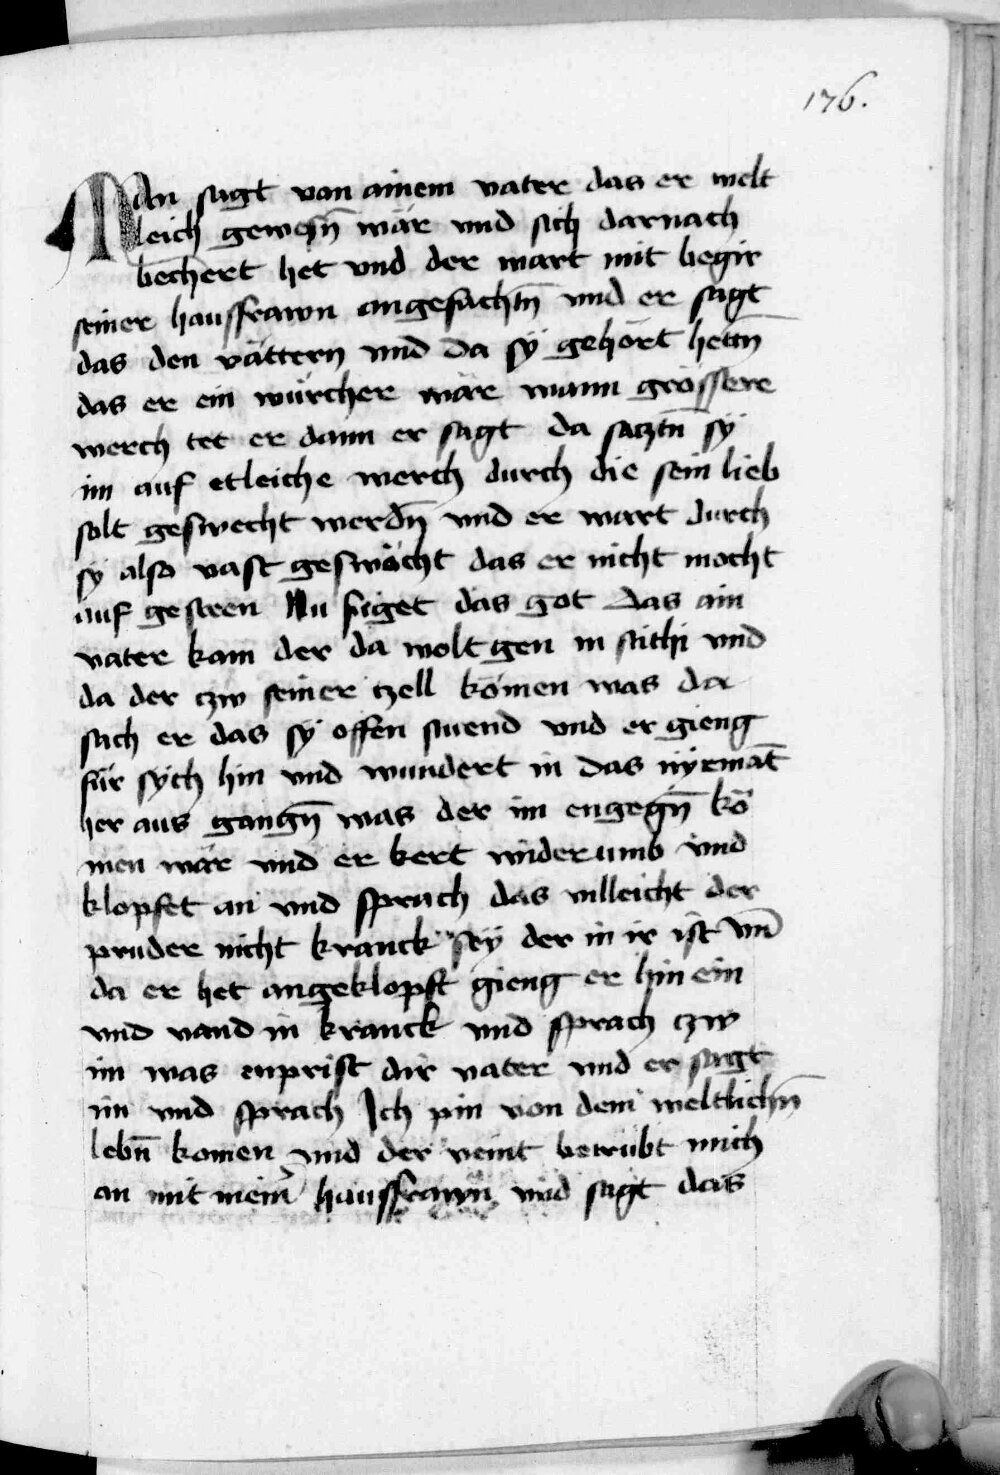 176.
Man sagt von ainem vater das er welt
leich gewesn̄ wär vnd sich darnach
bechert het vnd der wart mit begir
seiner hausfrawn angefachtn̄ vnd er sagt
das den vättern vnd da sy gehört hettn̄
das er ein würcher wär wann grössere
werch tet er dann er sagt da sacztn̄ sy
im auf etleiche werch durch die sein lieb
solt geswecht werdn̄ vnd er wart durch
sy also vast geswächt das er nicht mocht
auf gesteen Nu fuget das got das ain
vater kam der da wolt gen in sithi vnd
da der czw seiner tzell komen was da
sach er das sy offen stuend vnd er gieng
für sych hin vnd wundert in das nyemāt
her aus gangn̄ was der im engegn̄ kō
men wär vnd er kert widerumb vnd
klopfet an vnd sprach das villeicht der
pruder nicht kranck sey der in ir ist vn̄
da er het angeklopft gieng er hin ein
vnd vand in kranck vnd sprach czw
im was enprist dir vater vnd er sagt
im vnd sprach Ich pin von dem weltlichn̄
lebn̄ komen vnd der veint betrubt mich
an mit mein̄ hausfrawn vnd sagt das